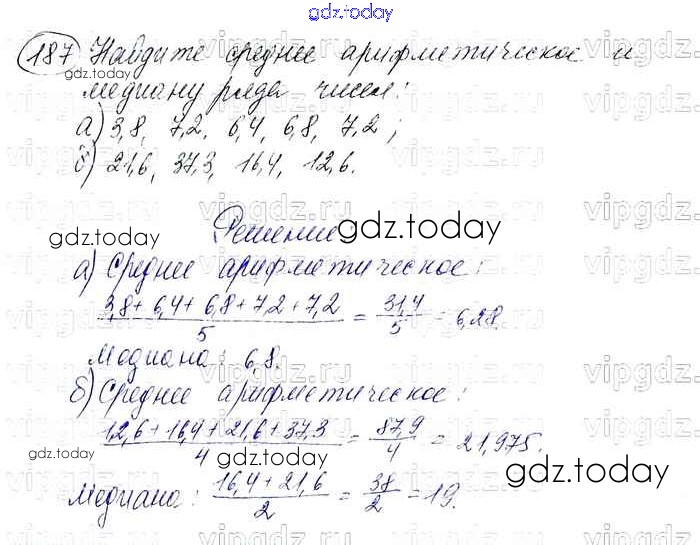 gdz.today
187 Найдите среднее арифметическое и
gdz.today
медиану ряда чисел:
а) 3,8, 7,2, 6,4, 6,8, 7,2;
б) 21,6, 37,3, 16,4, 12,6.
vipgdz.ru
Решение
gdz.today gdz.today
а) Среднее арифметическое:
(3,8+6,4+6,8+7,2+7,2)/5 = 31,4/5 = 6,28.
gdz.today
Медиана: 6,8.
б) Среднее арифметическое:
(12,6+16,4+21,6+37,3)/4 = 87,9/4 = 21,975.
gdz.today gdz.today
Медиана: (16,4+21,6)/2 = 38/2 = 19.
gdz.today